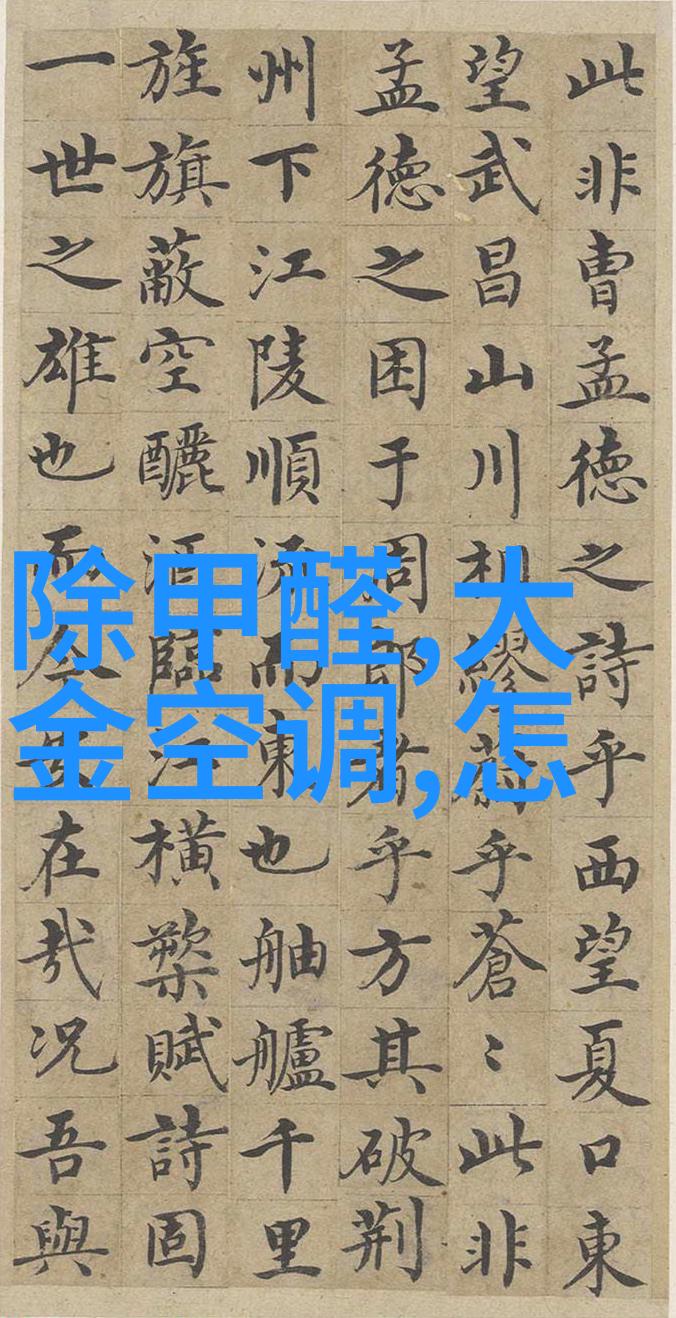 此非曹孟德之詩乎西望夏口東
望武昌山川相繆蔚乎蒼〻此非
孟德之困于周郎者乎方其破荆
州下江陵順流而東也舳艫千里
旌旗蔽空釃酒臨江橫槊賦詩固
一世之雄也而今安在哉况吾與
除甲醛,大
金空调,怎